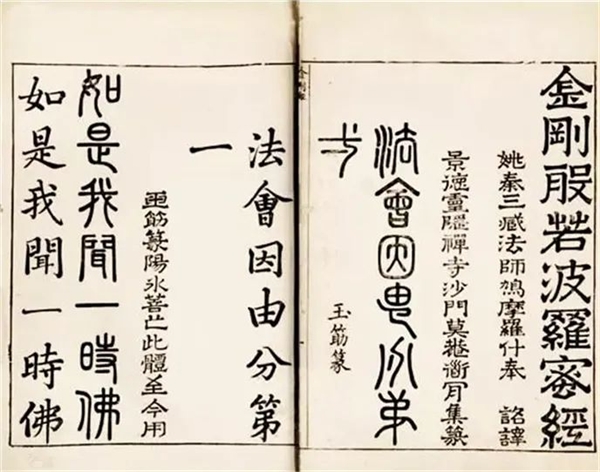 金剛般若波羅蜜經
姚秦三藏法師鳩摩羅什奉 詔譯
景德靈隱禪寺沙門莫菴道肯集篆
法會因由分弟
弌
玉筯篆
金剛經
法會因由分第
一
玉筯篆陽冰善此體至今用
如是我聞一時佛
如是我聞一時佛